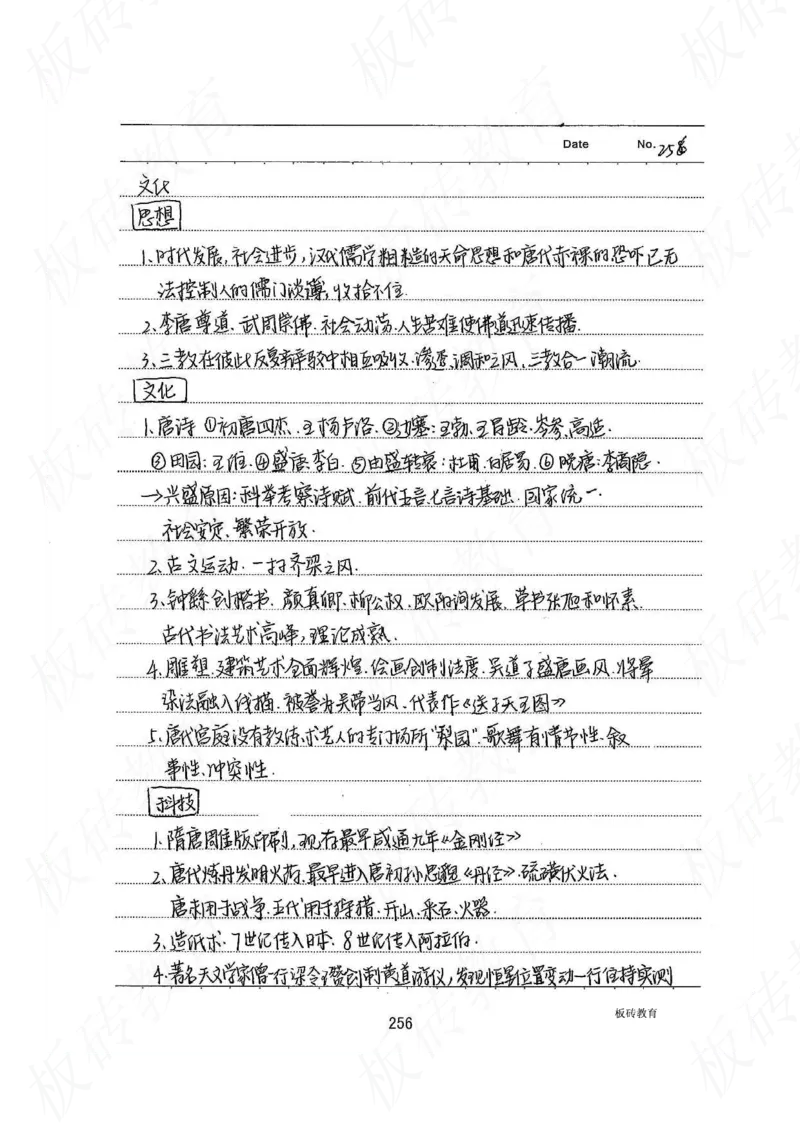 Date No. 256
文化
思想
1、时代发展,社会进步,汉代儒学粗糙的天命思想和唐代赤裸的恐吓已无
法控制人的儒门淡薄,收拾不住.
2、李唐尊道.武周崇佛.社会动荡.人生苦难使佛道迅速传播.
3、三教在彼此反复辩驳中相互吸收.渗透、调和之风,三教合一潮流.
文化
1.唐诗 ①初唐四杰.王杨卢洛.②边塞:王勃.王昌龄.岑参.高适.
③田园:王维.④盛唐.李白.⑤由盛转衰:杜甫.白居易.⑥晚唐:李商隐.
→兴盛原因:科举考察诗赋.前代五言七言诗基础.国家统一.
社会安定、繁荣开放.
2、古文运动.一扫齐梁之风.
3、钟繇创楷书.颜真卿、柳公权、欧阳询发展.草书张旭和怀素.
古代书法艺术高峰,理论成熟.
4.雕塑、建筑艺术全面辉煌.绘画创制法度.吴道子盛唐画风.将晕
染法融入线描.被誉为吴带当风、代表作《送子天王图》
5、唐代宫庭设有教传术艺人的专门场所"梨园".歌舞有情节性、叙
事性、冲突性.
科技
1、隋唐雕版印刷,现存最早咸通九年《金刚经》
2、唐代炼丹发明火药.最早进入唐初孙思邈《丹经》.硫磺伏火法.
唐末用于战争.五代用于狩猎.开山.采石、火器.
3、造纸术.7世纪传入日本.8世纪传入阿拉伯.
4.著名天文学家僧一行梁令瓒创制黄道游仪,发现恒星位置变动一行住持实测
256
板砖教育